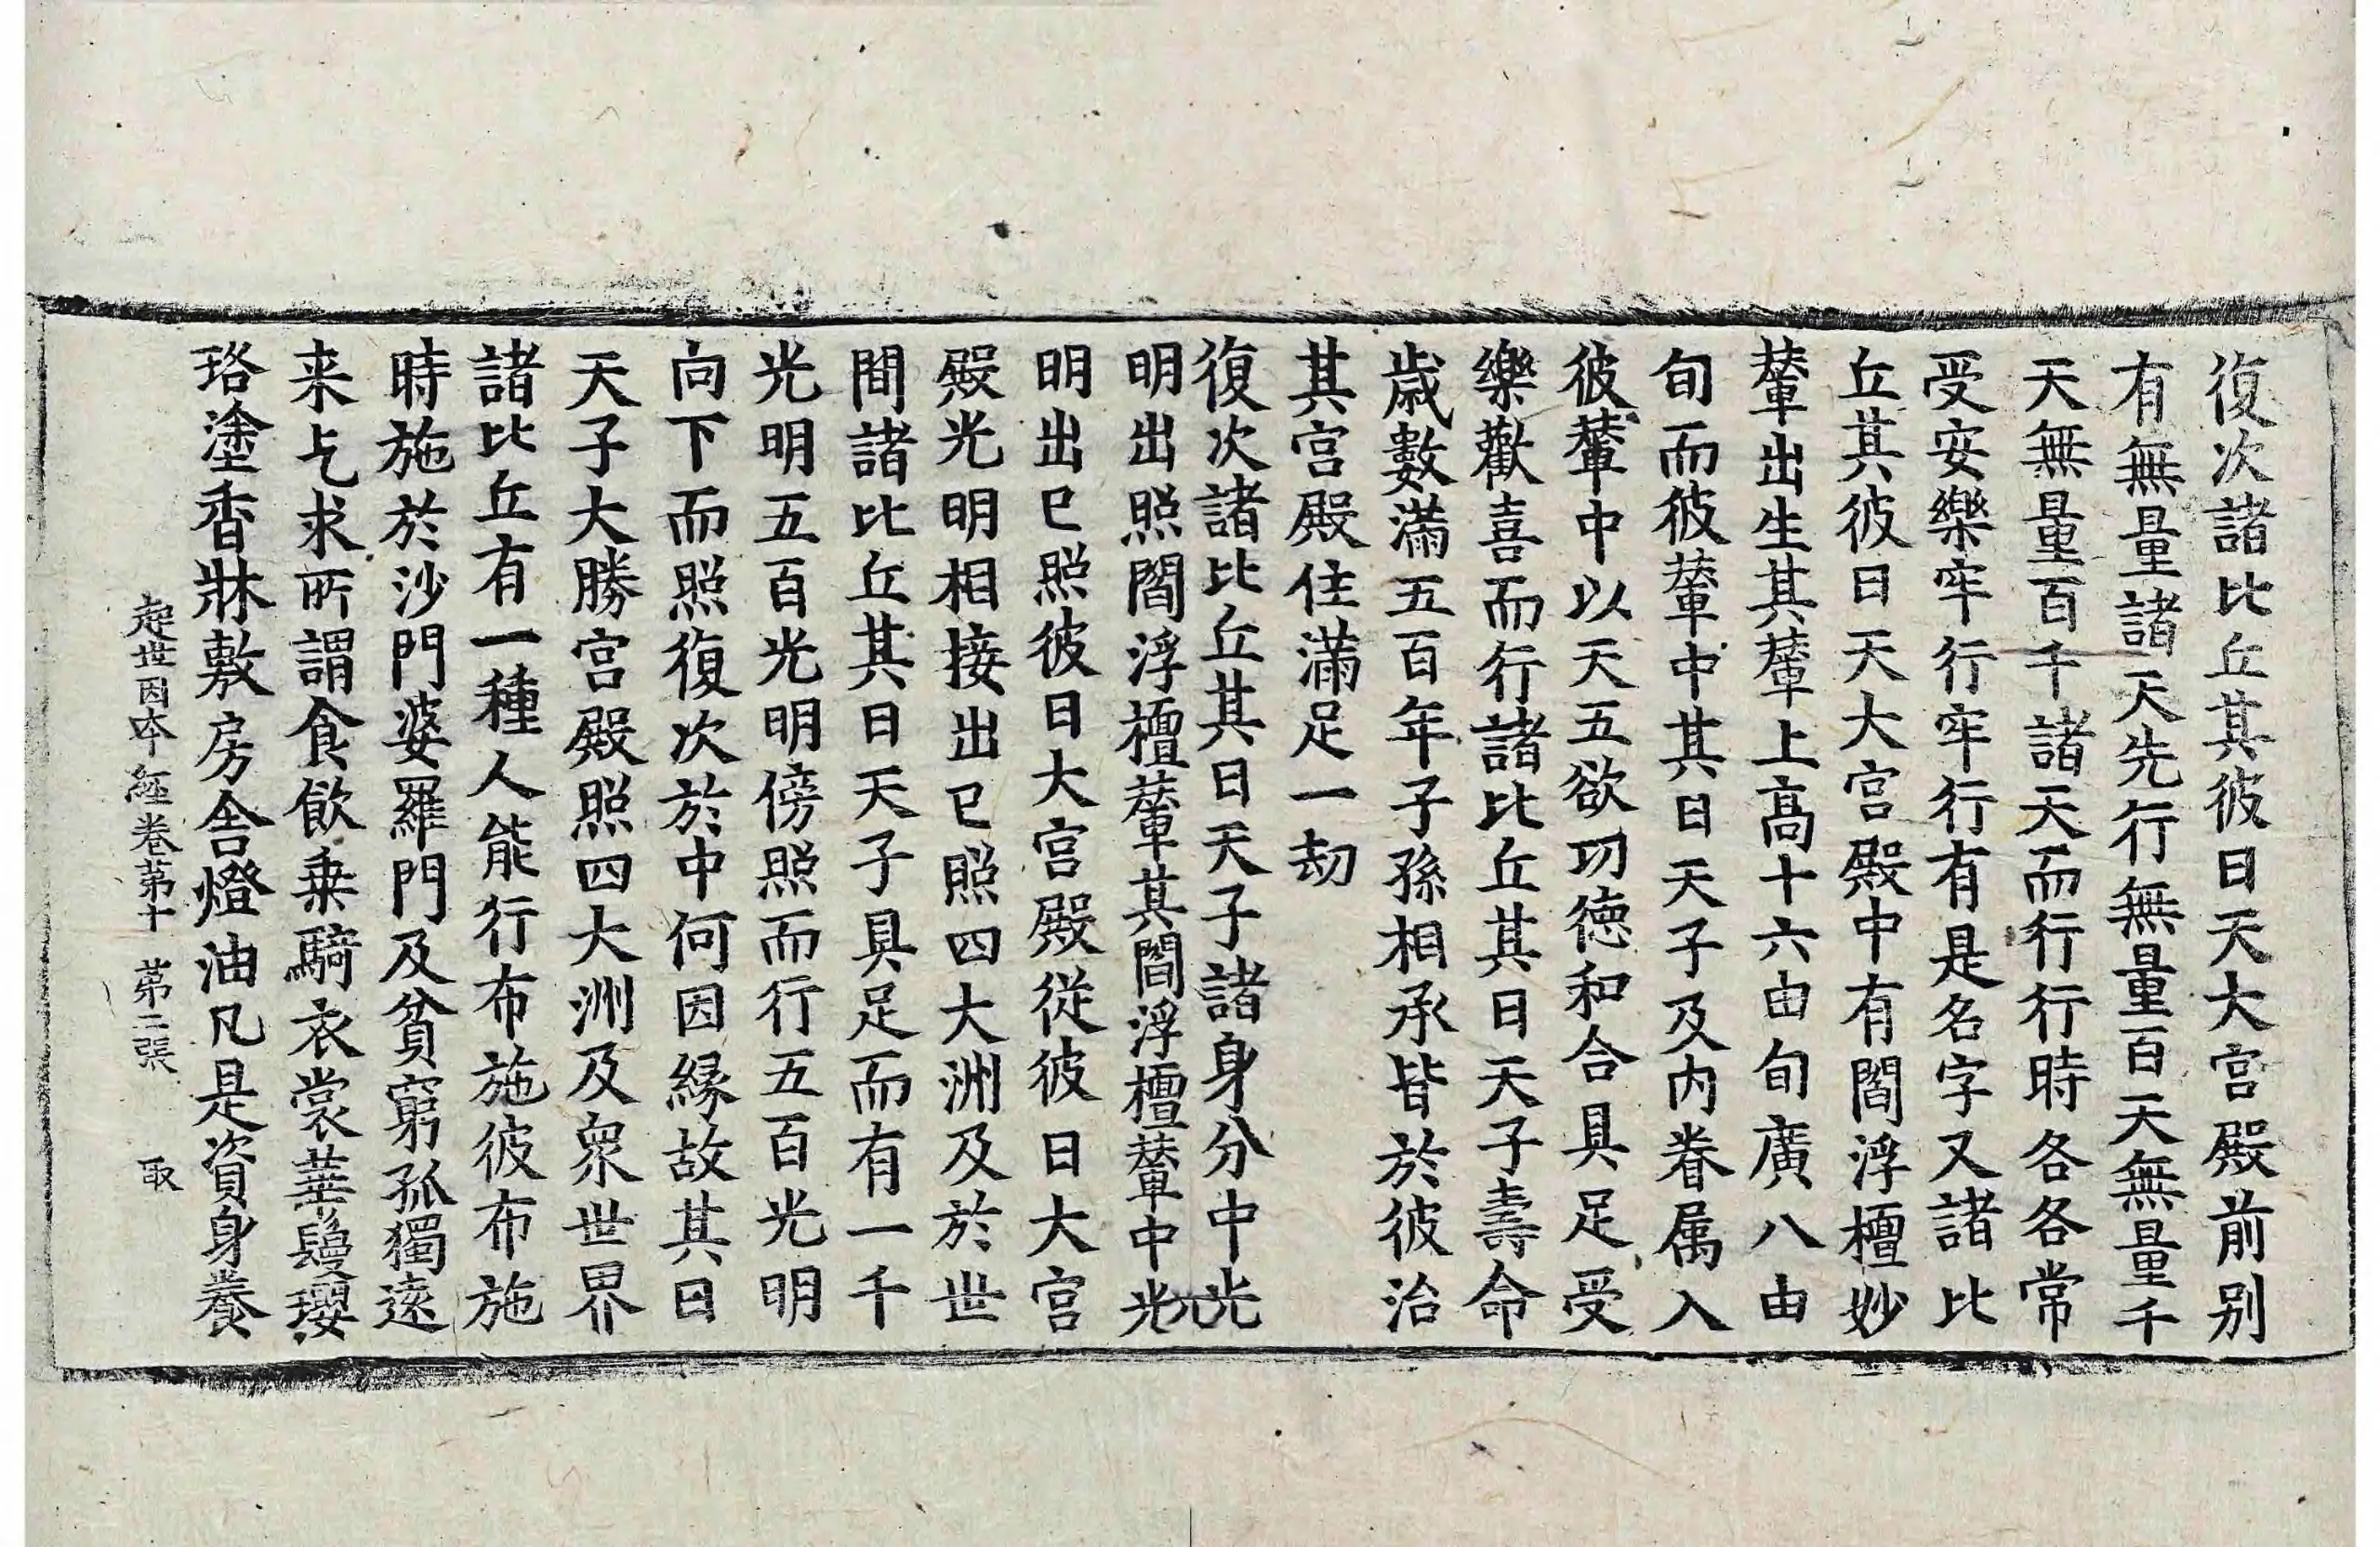 復次諸比丘其彼日天大宮殿前別
有無量諸天先行無量百天無量千
天無量百千諸天而行行時各各常
受安樂牢行牢行有是名字又諸比
丘其彼日天大宮殿中有閻浮檀妙
輦出生其輦上高十六由旬廣八由
旬而彼輦中其日天子及內眷属入
彼輦中以天五欲功德和合具足受
樂歡喜而行諸比丘其日天子壽命
歲數滿五百年子孫相承皆於彼治
其宮殿住滿足一劫
復次諸比丘其日天子諸身分中光
明出照閻浮檀輦其閻浮檀輦中光
明出已照彼日大宮殿從彼日大宮
殿光明相接出已照四大洲及於世
間諸比丘其日天子具足而有一千
光明五百光明傍照而行五百光明
向下而照復次於中何因緣故其日
天子大勝宮殿照四大洲及衆世界
諸比丘有一種人能行布施彼布施
時施於沙門婆羅門及貧窮孤獨遠
来乞求所謂食飲乗騎衣裳華鬘瓔
珞塗香牀敷房舍燈油凡是資身養
起世因本經卷第十 第二張 取